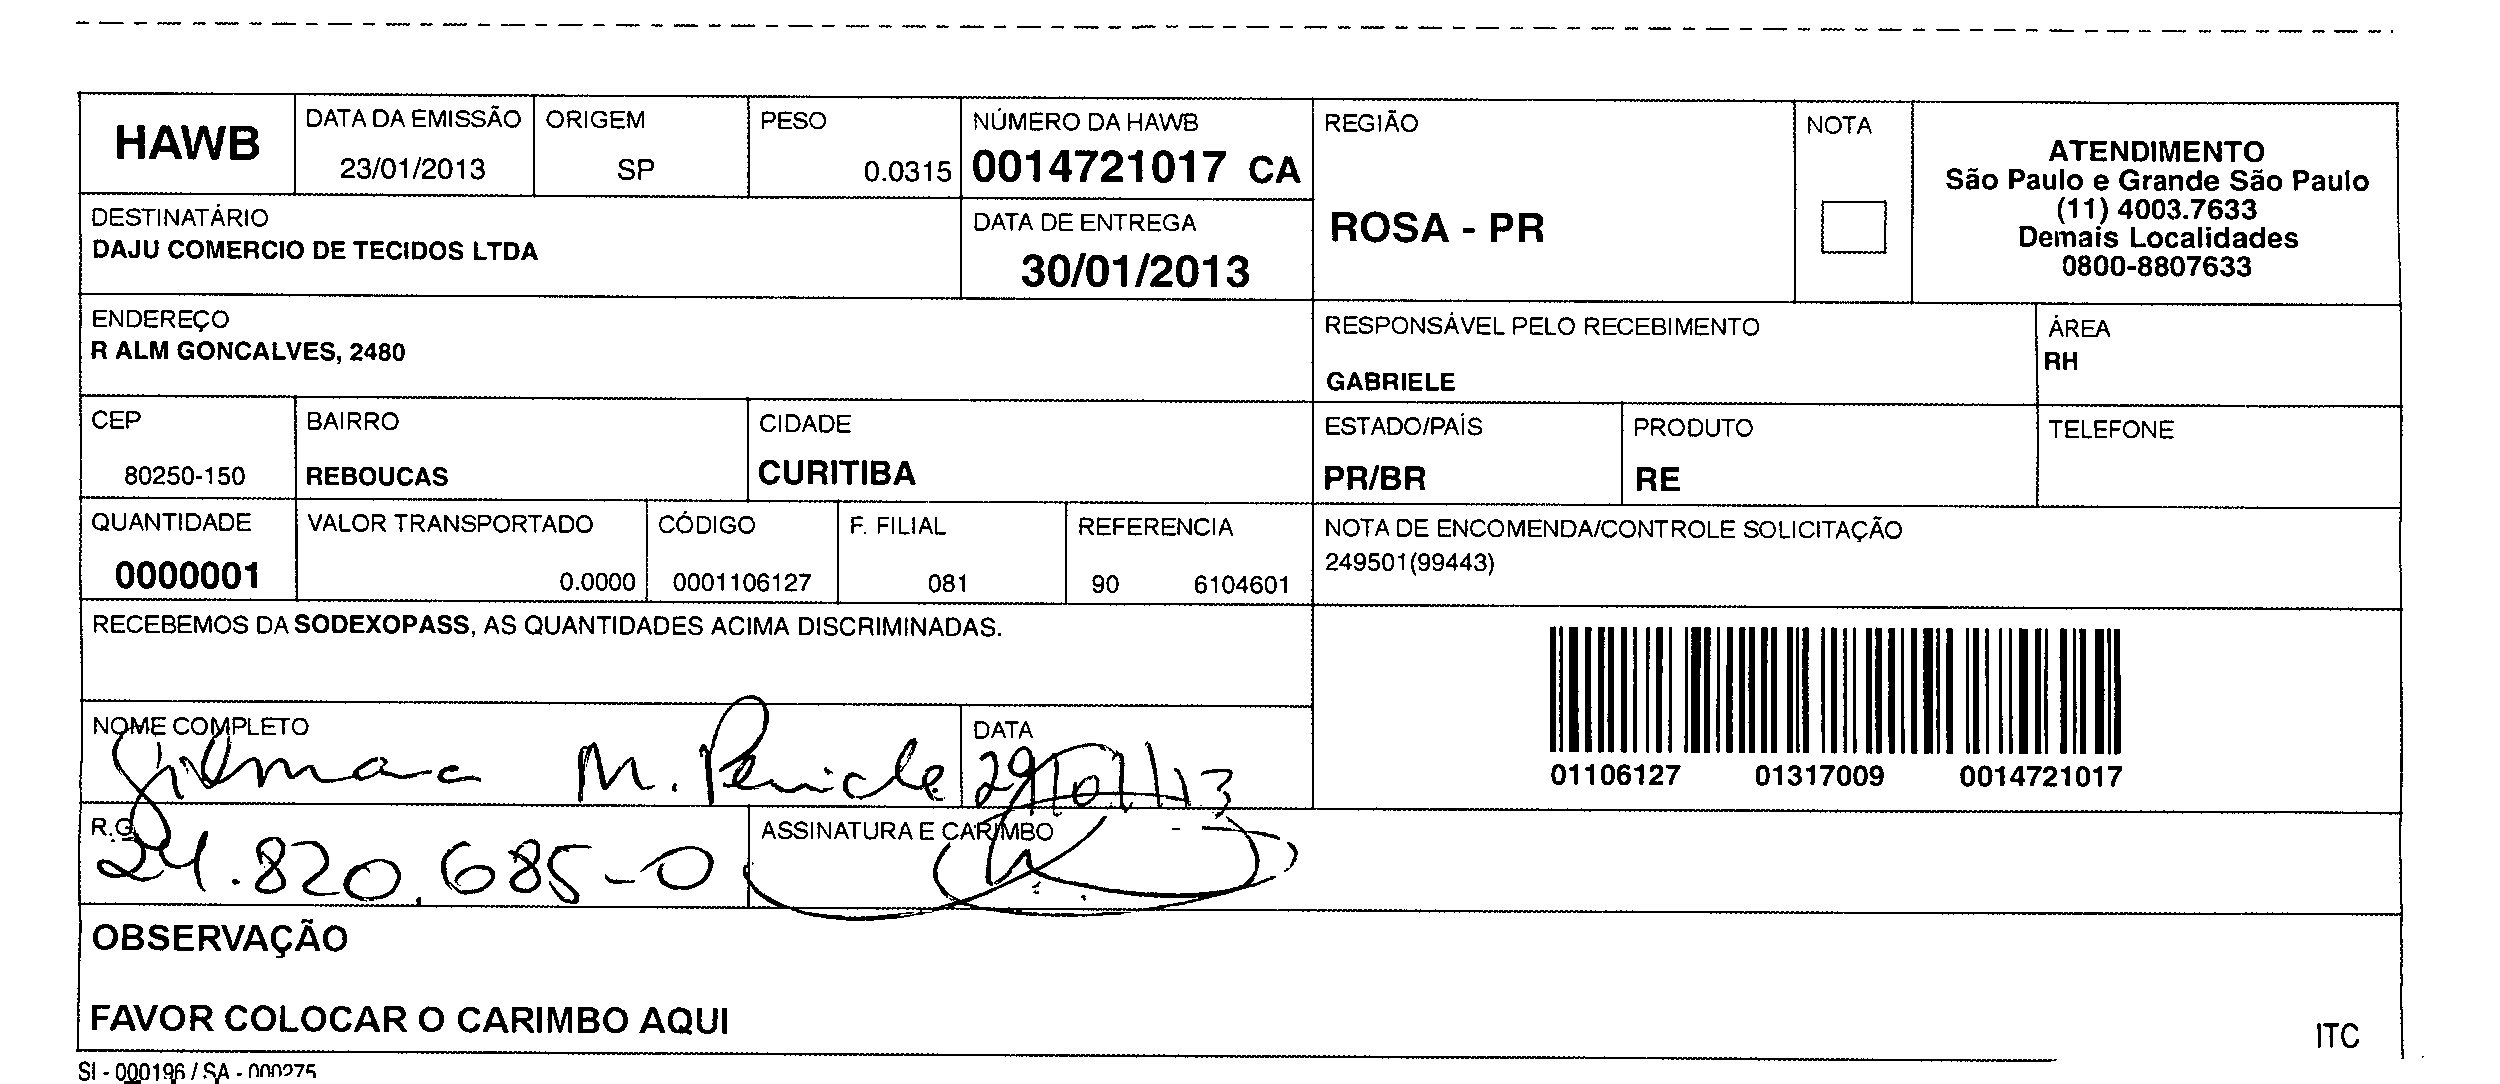 HAWB
DATA DA EMISSÃO
23/01/2013
ORIGEM
SP
PESO
0.0315
NÚMERO DA HAWB
0014721017 CA
REGIÃO
ROSA - PR
NOTA
ATENDIMENTO
São Paulo e Grande São Paulo
(11) 4003.7633
Demais Localidades
0800-8807633
DESTINATÁRIO
DAJU COMERCIO DE TECIDOS LTDA
DATA DE ENTREGA
30/01/2013
ENDEREÇO
R ALM GONCALVES, 2480
RESPONSÁVEL PELO RECEBIMENTO
GABRIELE
ÁREA
RH
CEP
80250-150
BAIRRO
REBOUCAS
CIDADE
CURITIBA
ESTADO/PAÍS
PR/BR
PRODUTO
RE
TELEFONE
QUANTIDADE
0000001
VALOR TRANSPORTADO
0.0000
CÓDIGO
0001106127
F. FILIAL
081
REFERENCIA
90 6104601
NOTA DE ENCOMENDA/CONTROLE SOLICITAÇÃO
249501(99443)
RECEBEMOS DA SODEXOPASS, AS QUANTIDADES ACIMA DISCRIMINADAS.
01106127 01317009 0014721017
NOME COMPLETO
M.
DATA
29/01/13
R.G
24.820.685-0
ASSINATURA E CARIMBO
OBSERVAÇÃO
FAVOR COLOCAR O CARIMBO AQUI
ITC
SI - 000196 / SA - 000275